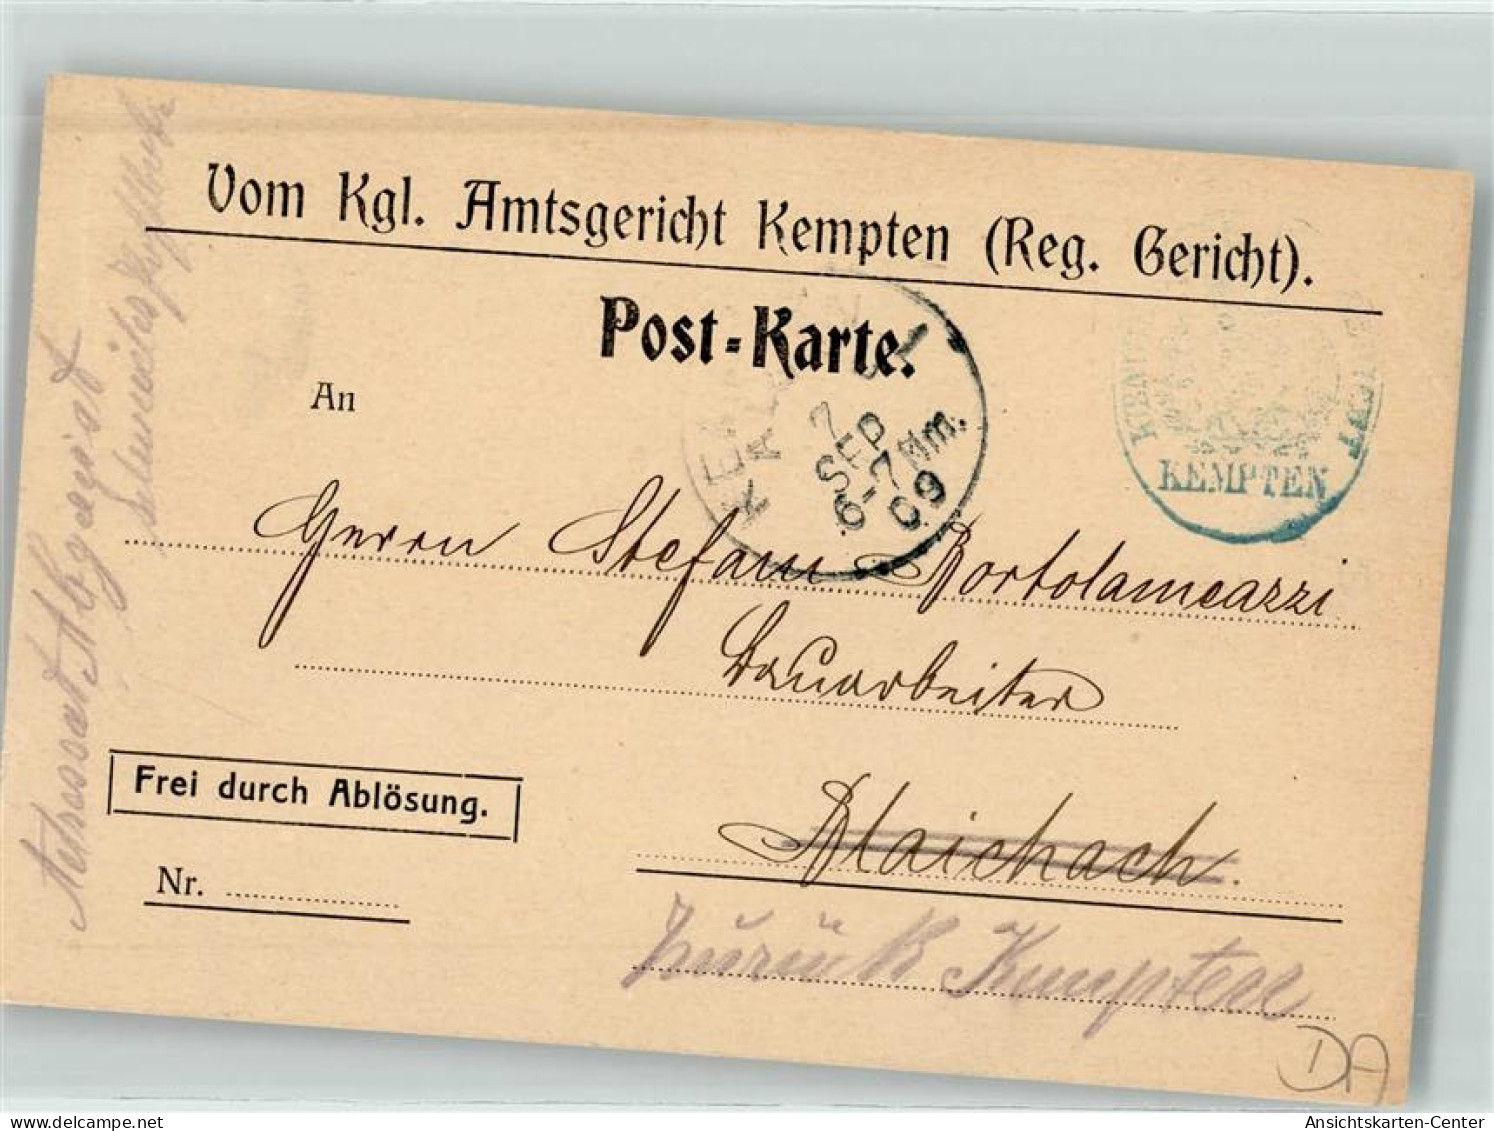 Vom Kgl. Amtsgericht Kempten (Reg. Gericht).
Post-Karte.
An
7
SEP
6-7 Nm.
09
KEMPTEN
Herrn Stefani Bortolameazzi
Bauarbeiter
Blaichach.
Frei durch Ablösung.
Nr.
Zurück Kempten
Adressat Abgereist
DA
Ansichtskarten-Center